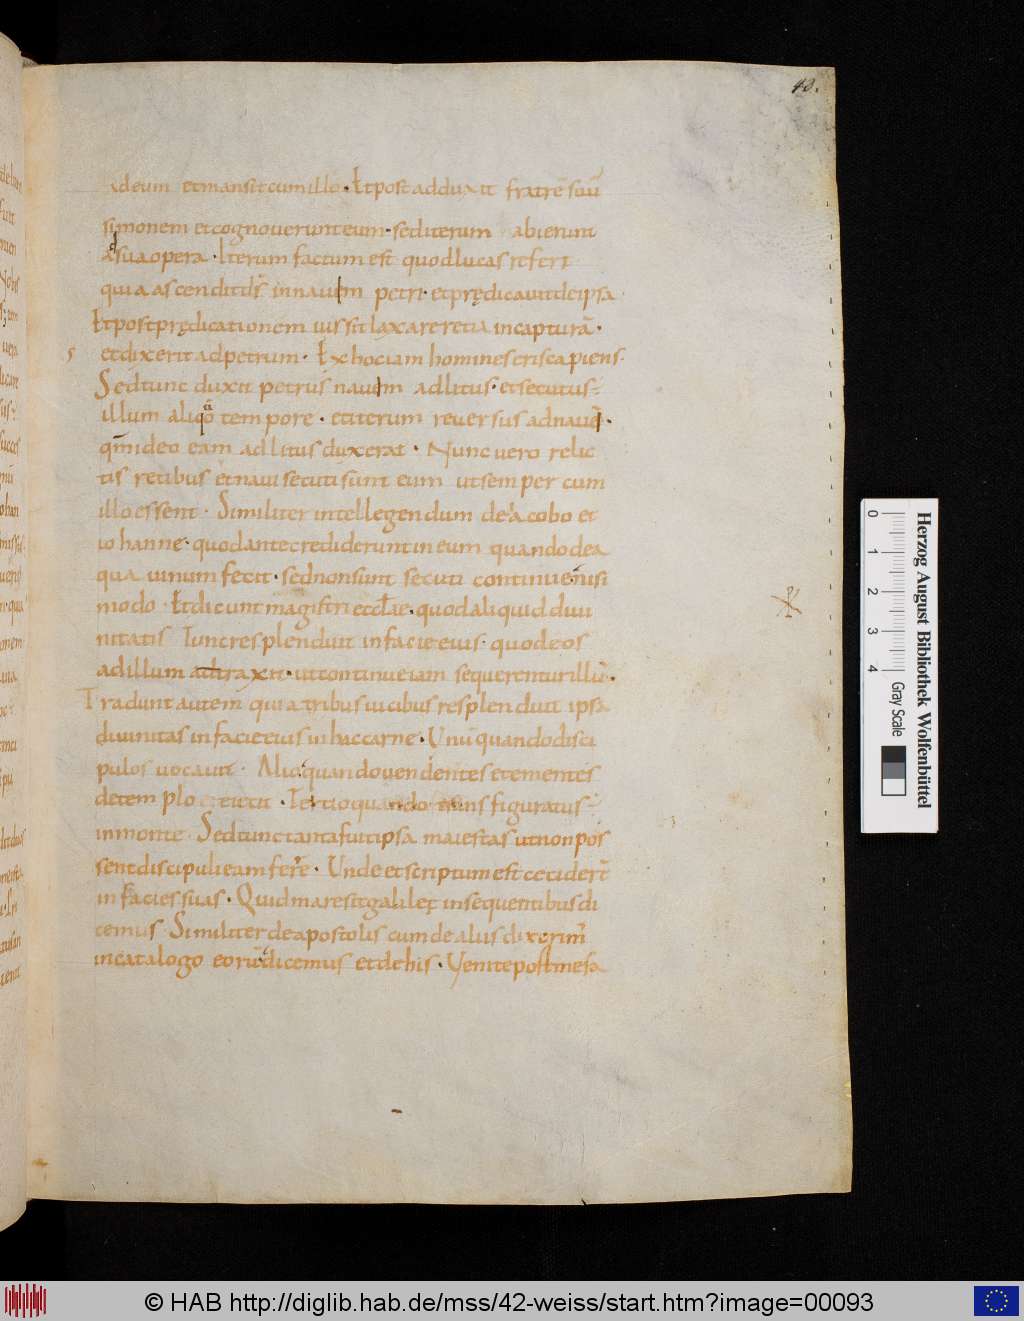 43.
adeum et mansit cum illo. Et post adduxit fratrē suū
simonem et cognoverunt eum. sed iterum abierunt
ad sua opera. Iterum factum est quod lucas refert
quia ascendit dn̄s in navem petri. et prędicavit de ipsa.
Et post prędicationem iussit laxare retia in capturā.
et dixerit ad petrum. Ex hoc iam homines eris capiens.
Sed tunc duxit petrus navem ad litus. et secutus
illum aliquo tempore. et iterum reversus ad navē.
qm̄ ideo eam ad litus duxerat. Nunc vero relic
tis retibus et navi secuti sunt eum ut semper cum
illo essent. Similiter intellegendum de iacobo et
iohanne. quod ante crediderunt in eum quando de a
qua vinum fecit. sed non sunt secuti continue nisi
modo. Et dicunt magistri ecclae. quod aliquid divi
nitatis tunc resplenduit in facie eius. quod eos
ad illum attraxit. ut continue iam sequerentur illū.
Tradunt autem quia tribus vicibus resplenduit ipsa
divinitas in facie eius in hac carne. Unū quando disci
pulos vocavit. Alio quando vendentes et ementes
de templo eiecit. Tertio quando transfiguratus
in monte. Sed tunc tanta fuit ipsa maiestas ut non pos
sent discipuli eam ferre. Unde et scriptum est cecidert̄
in facies suas. Quid mare sit galileę in sequentibus di
cemus. Similiter de apostolis cum de aliis dixerim̄
in catalogo eorū dicemus et de his. Venite post me fa
0 1 2 3 4
Gray Scale
Herzog August Bibliothek Wolfenbüttel
© HAB http://diglib.hab.de/mss/42-weiss/start.htm?image=00093